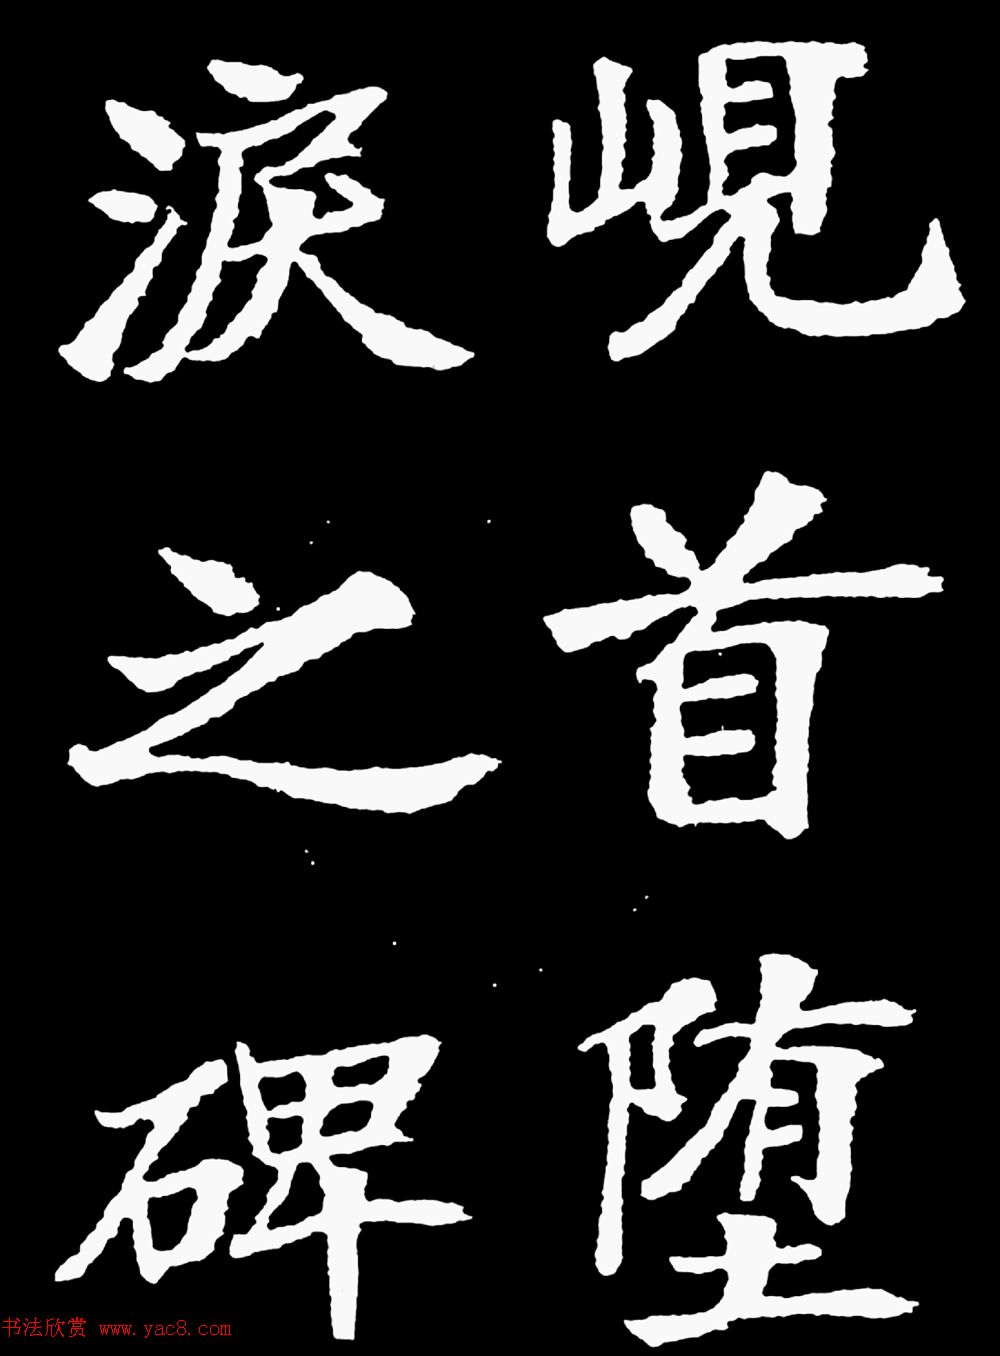 峴首堕
淚之碑
书法欣赏 www.yac8.com